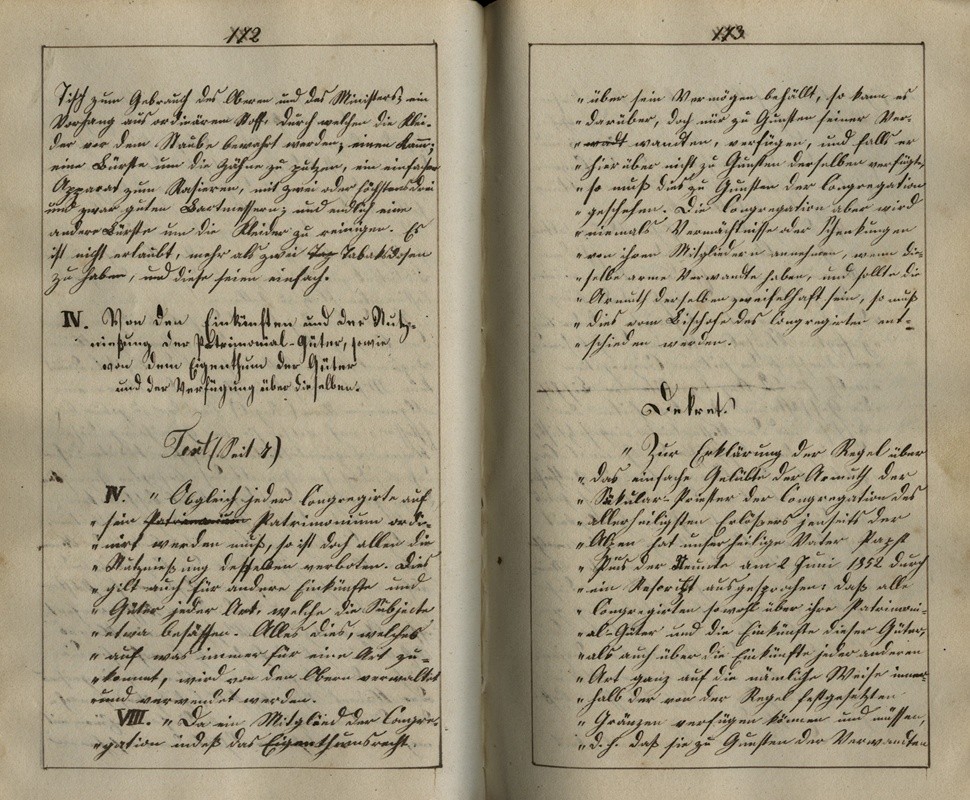 172
Tisch zum Gebrauch des Obern und des Ministers; ein
Vorhang aus ordinärem Stoff, durch welchen die Klei-
der vor dem Staube bewahrt werden; einen Kam;
eine Bürste um die Zähne zu putzen, ein einfacher
Apparat zum Rasieren, mit zwei oder höchstens drei
und zwar guten Bartmessern; und endlich eine
andere Bürste um die Kleider zu reinigen. Es
ist nicht erlaubt, mehr als zwei Tabakdosen
zu haben, und diese seien einfach.
IV. Von den Einkünften und der Nutz-
nießung der Patrimonial-Güter, sowie
von dem Eigenthum der Güter
und der Verfügung über dieselben.
Text (Seit 4)
IV. " Obgleich jeder Congregirte auf
" sein Patrimonium Patrimonium ordi-
" nirt werden muß, so ist doch allen die
" Nutznießung desselben verboten. Dies
" gilt auch für andere Einkünfte und
" Güter jeder Art, welche die Subjecte
" etwa besäßen. Alles dies, welches
" auf was immer für eine Art zu-
" kommt, wird von den Obern verwaltet
" und verwendet werden.
VIII. " Da ein Mitglied der Congre-
" gation indeß das Eigenthumsrecht
173
" über sein Vermögen behällt, so kann es
" darüber, doch nur zu Gunsten seiner Ver-
" wandten, verfügen, und falls er
" hierüber nicht zu Gunsten derselben verfügt,
" so muß dies zu Gunsten der Congregation
" geschehen. Die Congregation aber wird
" niemals Vermächtnisse oder Schenkungen
" von ihren Mitgliedern annehmen, wenn die-
" selbe arme Verwandte haben, und sollte die
" Armuth derselben zweifelhaft sein, so muß
" dies vom Bischofe des Congregirten ent-
" schieden werden.
Dekret.
" Zur Erklärung der Regel über
" das einfache Gelübte der Armuth der
" Säkular-Priester der Congregation des
" allerheiligsten Erlösers jenseits der
" Alpen hat unser heilige Vater Papst
" Pius der Neunte am 2 Juni 1852 durch
" ein Rescript ausgesprochen: daß alle
" Congregirten sowohl über ihre Patrimoni-
" al-Güter und die Einkünfte dieser Güter,
" als auch über die Einkünfte jeder anderen
" Art ganz auf die nämliche Weise inner-
" halb der von der Regel festgesetzten
" Gränzen verfügen können und müssen,
" d. h. daß sie zu Gunsten der Verwandten